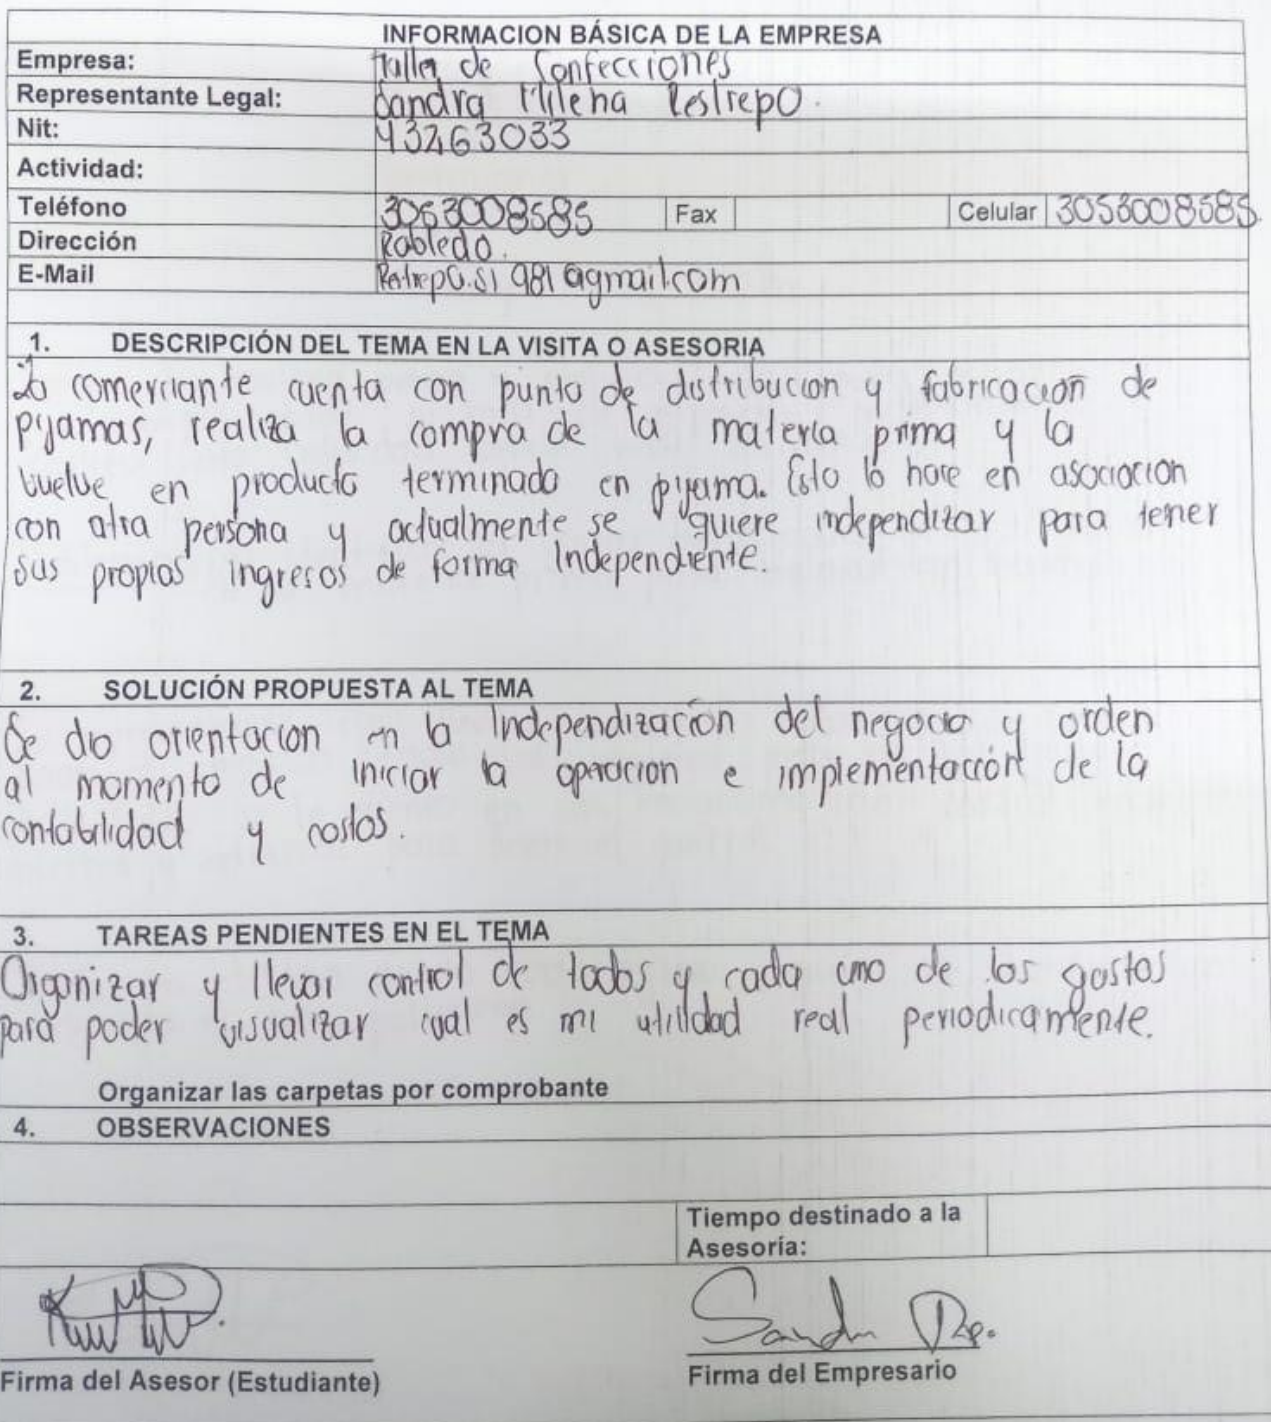 INFORMACION BÁSICA DE LA EMPRESA
Empresa: Taller de Confecciones
Representante Legal: Sandra Milena Restrepo.
Nit: 43263033
Actividad:
Teléfono 3053008585 Fax Celular 3053008585.
Dirección Robledo.
E-Mail Restrepo.s1981@gmail.com
1. DESCRIPCIÓN DEL TEMA EN LA VISITA O ASESORIA
La comerciante cuenta con punto de distribucion y fabricación de
pyjamas, realiza la compra de la materia prima y la
vuelve en producto terminado en piyama. Esto lo hace en asociacion
con otra persona y actualmente se quiere independizar para tener
sus propios ingresos de forma Independiente.
2. SOLUCIÓN PROPUESTA AL TEMA
Se dio orientacion en la Independización del negocio y orden
al momento de iniciar la operacion e implementacción de la
contabilidad y costos.
3. TAREAS PENDIENTES EN EL TEMA
Organizar y llevar control de todos y cada uno de los gastos
para poder visualizar cual es mi utilidad real periodicamente.
Organizar las carpetas por comprobante
4. OBSERVACIONES
Tiempo destinado a la
Asesoría:
Sandra
Firma del Asesor (Estudiante) Firma del Empresario